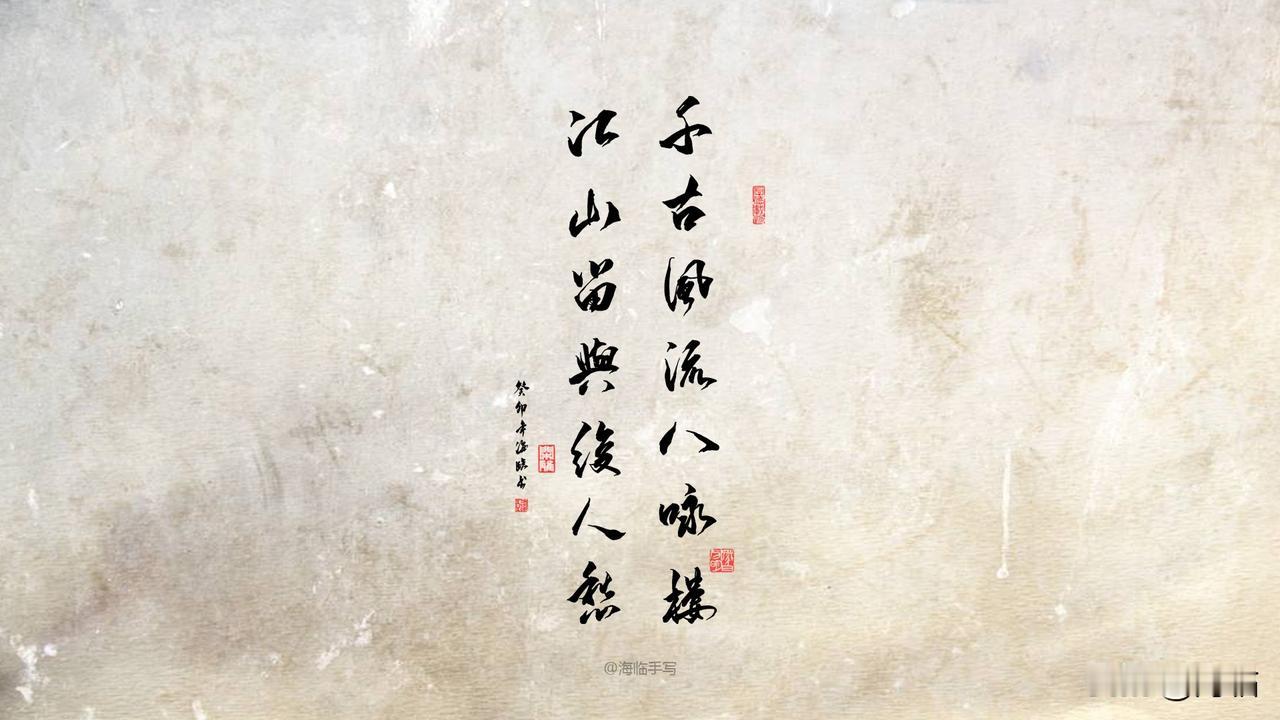 千古風流人咏樓
江山留與後人愁
癸卯年海临书
@海临手写